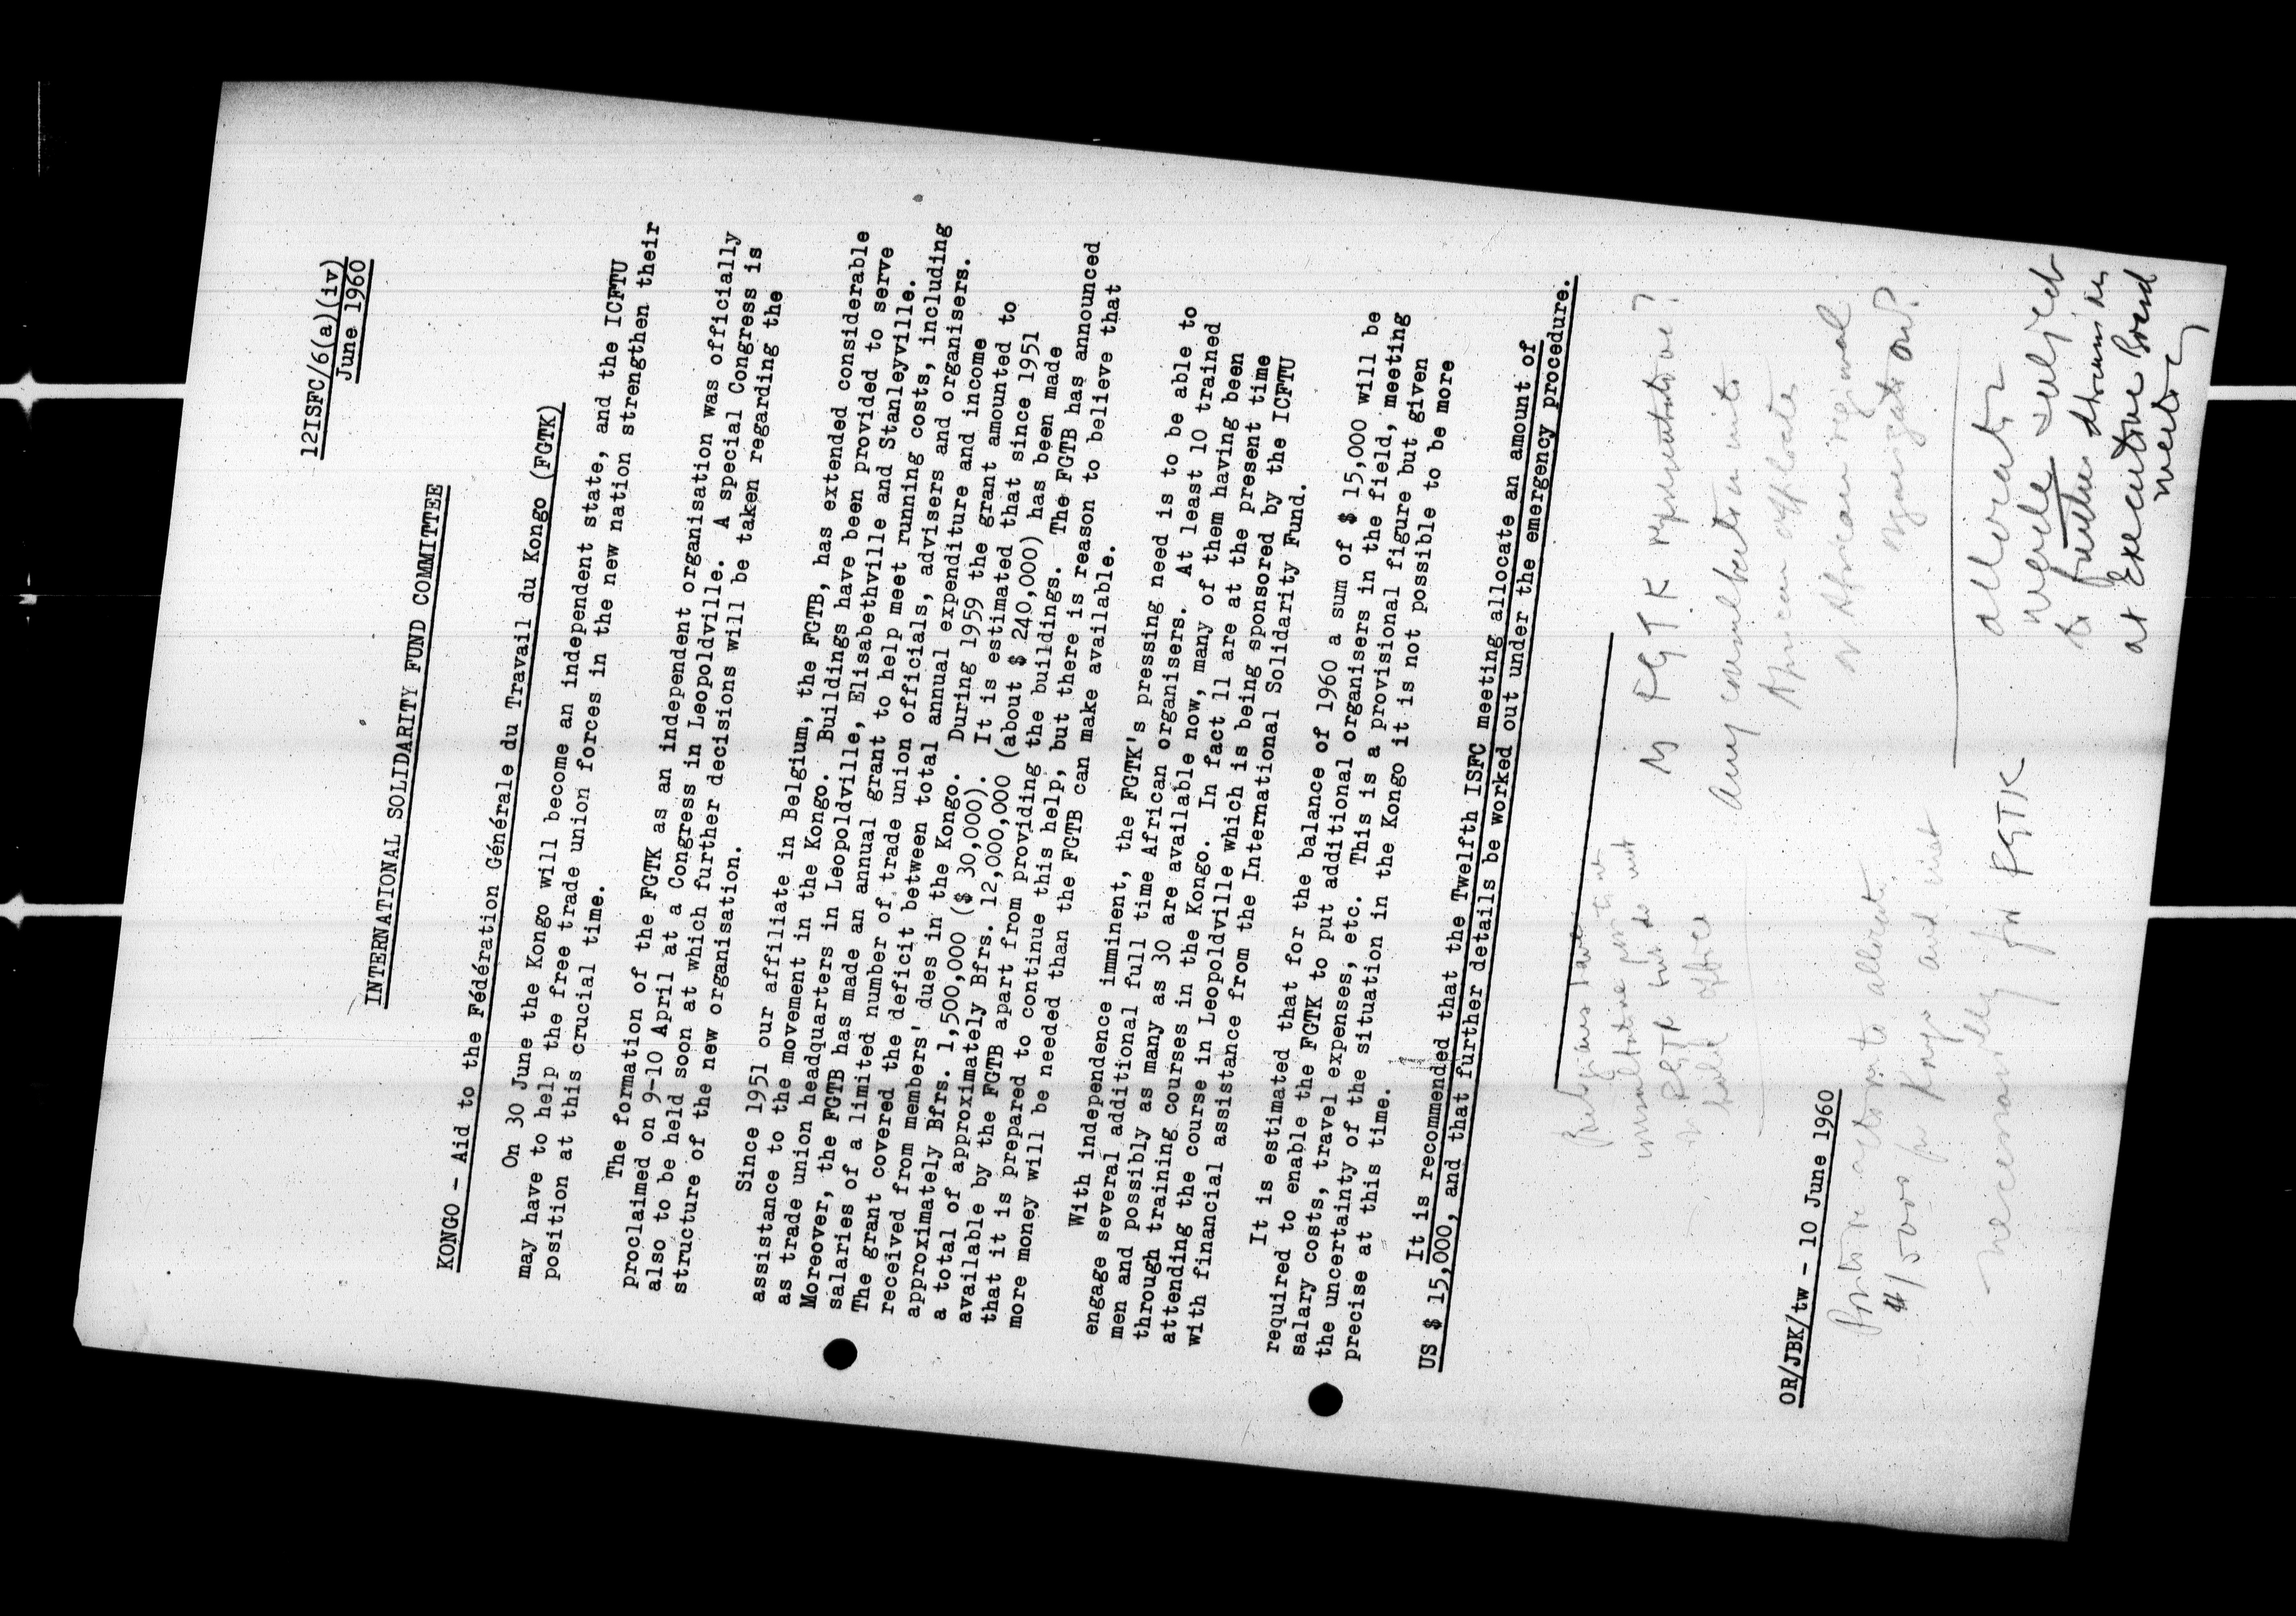 12ISFC/6(a)(iv)
June 1960
INTERNATIONAL SOLIDARITY FUND COMMITTEE
KONGO - Aid to the Fédération Générale du Travail du Kongo (FGTK)
On 30 June the Kongo will become an independent state, and the ICFTU
may have to help the free trade union forces in the new nation strengthen their
position at this crucial time.
The formation of the FGTK as an independent organisation was officially
proclaimed on 9-10 April at a Congress in Leopoldville. A special Congress is
also to be held soon at which further decisions will be taken regarding the
structure of the new organisation.
Since 1951 our affiliate in Belgium, the FGTB, has extended considerable
assistance to the movement in the Kongo. Buildings have been provided to serve
as trade union headquarters in Leopoldville, Elisabethville and Stanleyville.
Moreover, the FGTB has made an annual grant to help meet running costs, including
salaries of a limited number of trade union officials, advisers and organisers.
The grant covered the deficit between total annual expenditure and income
received from members' dues in the Kongo. During 1959 the grant amounted to
approximately Bfrs. 1,500,000 ($ 30,000). It is estimated that since 1951
a total of approximately Bfrs. 12,000,000 (about $ 240,000) has been made
available by the FGTB apart from providing the buildings. The FGTB has announced
that it is prepared to continue this help, but there is reason to believe that
more money will be needed than the FGTB can make available.
With independence imminent, the FGTK's pressing need is to be able to
engage several additional full time African organisers. At least 10 trained
men and possibly as many as 30 are available now, many of them having been
through training courses in the Kongo. In fact 11 are at the present time
attending the course in Leopoldville which is being sponsored by the ICFTU
with financial assistance from the International Solidarity Fund.
It is estimated that for the balance of 1960 a sum of $ 15,000 will be
required to enable the FGTK to put additional organisers in the field, meeting
salary costs, travel expenses, etc. This is a provisional figure but given
the uncertainty of the situation in the Kongo it is not possible to be more
precise at this time.
It is recommended that the Twelfth ISFC meeting allocate an amount of
US $ 15,000, and that further details be worked out under the emergency procedure.
FGTK representative?
Any consultation with
African affiliates
or African regional
organisation?
Belgians have
consultative
FGTK but do not
hold office
OR/JBK/tw - 10 June 1960
to allocate
$15000 for Kongo and not
necessarily for FGTK
allocation
made subject
to further discussion
at Executive Board
meeting